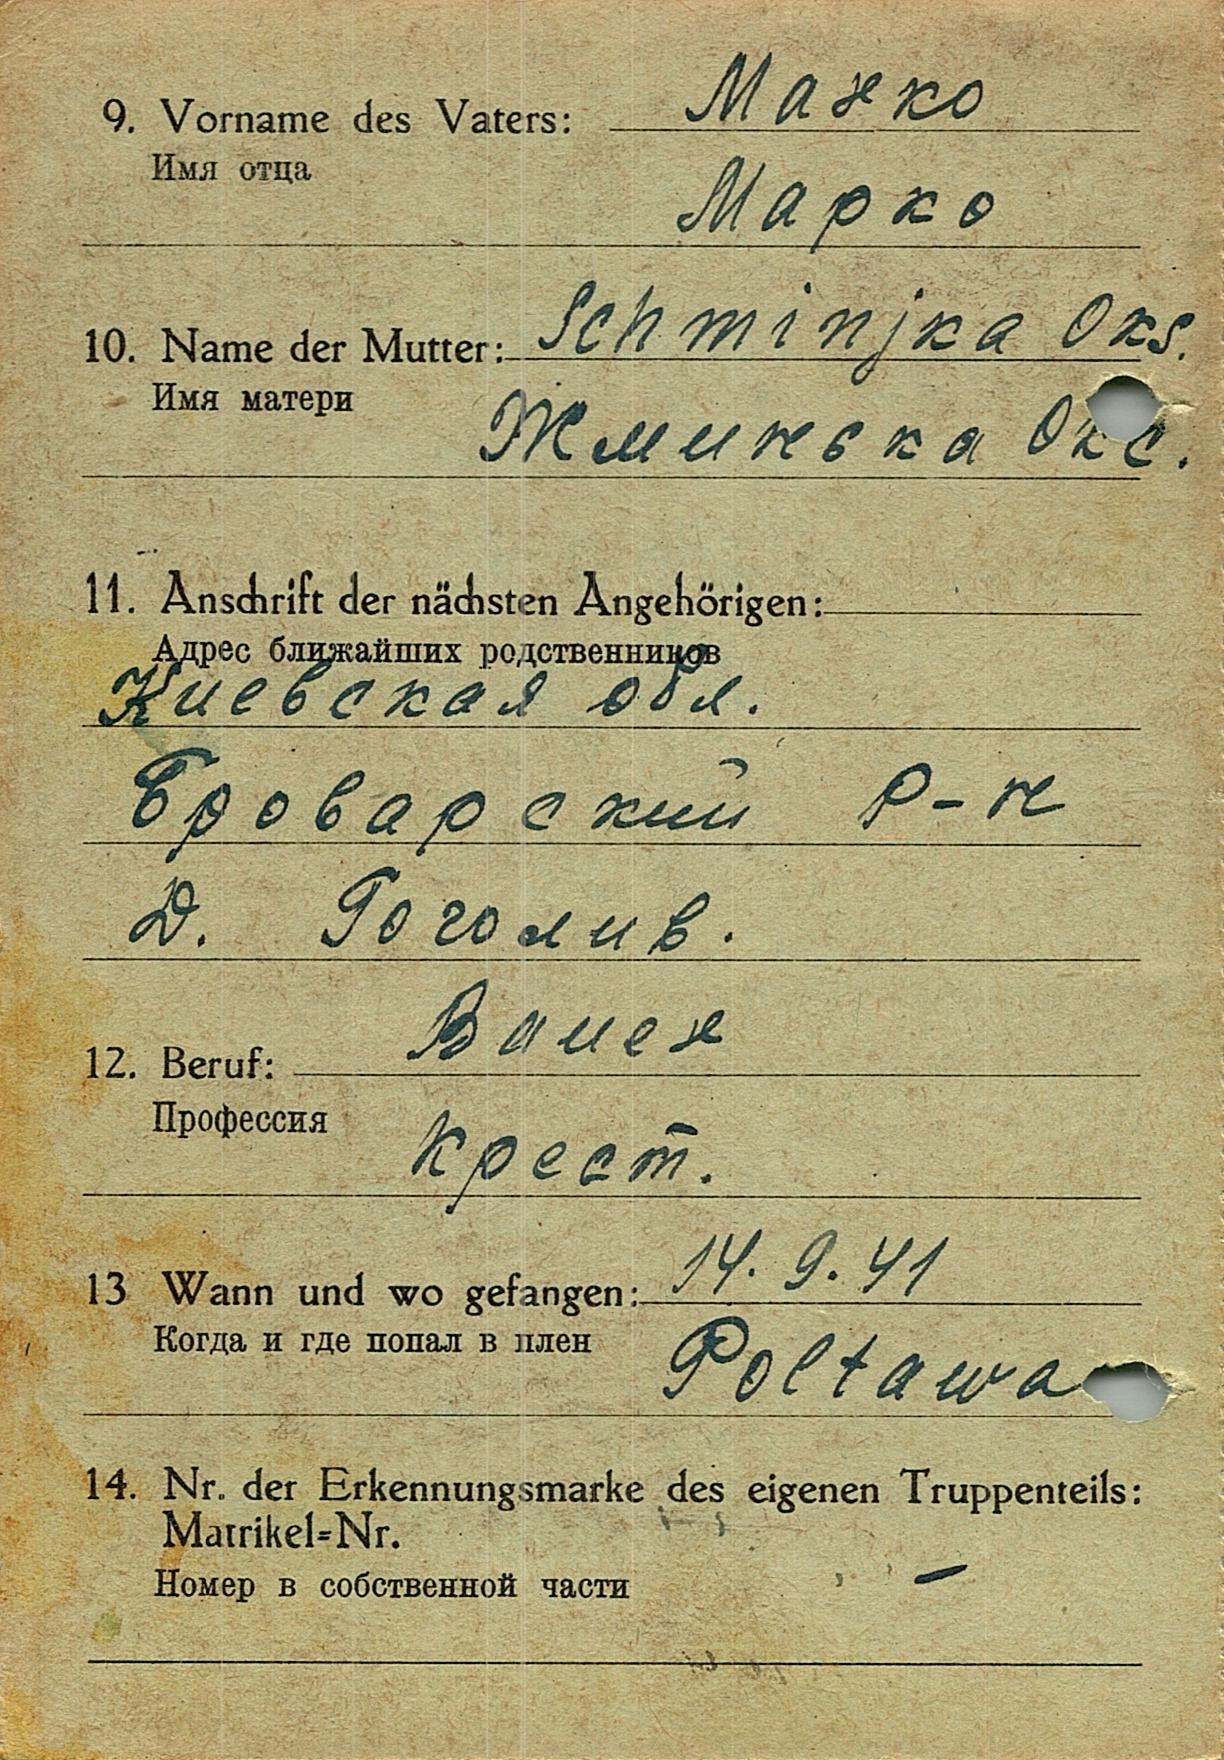 9. Vorname des Vaters: Marko
Имя отца
Марко
10. Name der Mutter: Schminjka Oks.
Имя матери
Жминька Окс.
11. Anschrift der nächsten Angehörigen:
Адрес ближайших родственников
Киевская обл.
Броварский р-н
Д. Гоголив.
12. Beruf: Bauer
Профессия
крест.
13 Wann und wo gefangen: 14. 9. 41
Когда и где попал в плен
Poltawa
14. Nr. der Erkennungsmarke des eigenen Truppenteils:
Matrikel=Nr.
Номер в собственной части
–